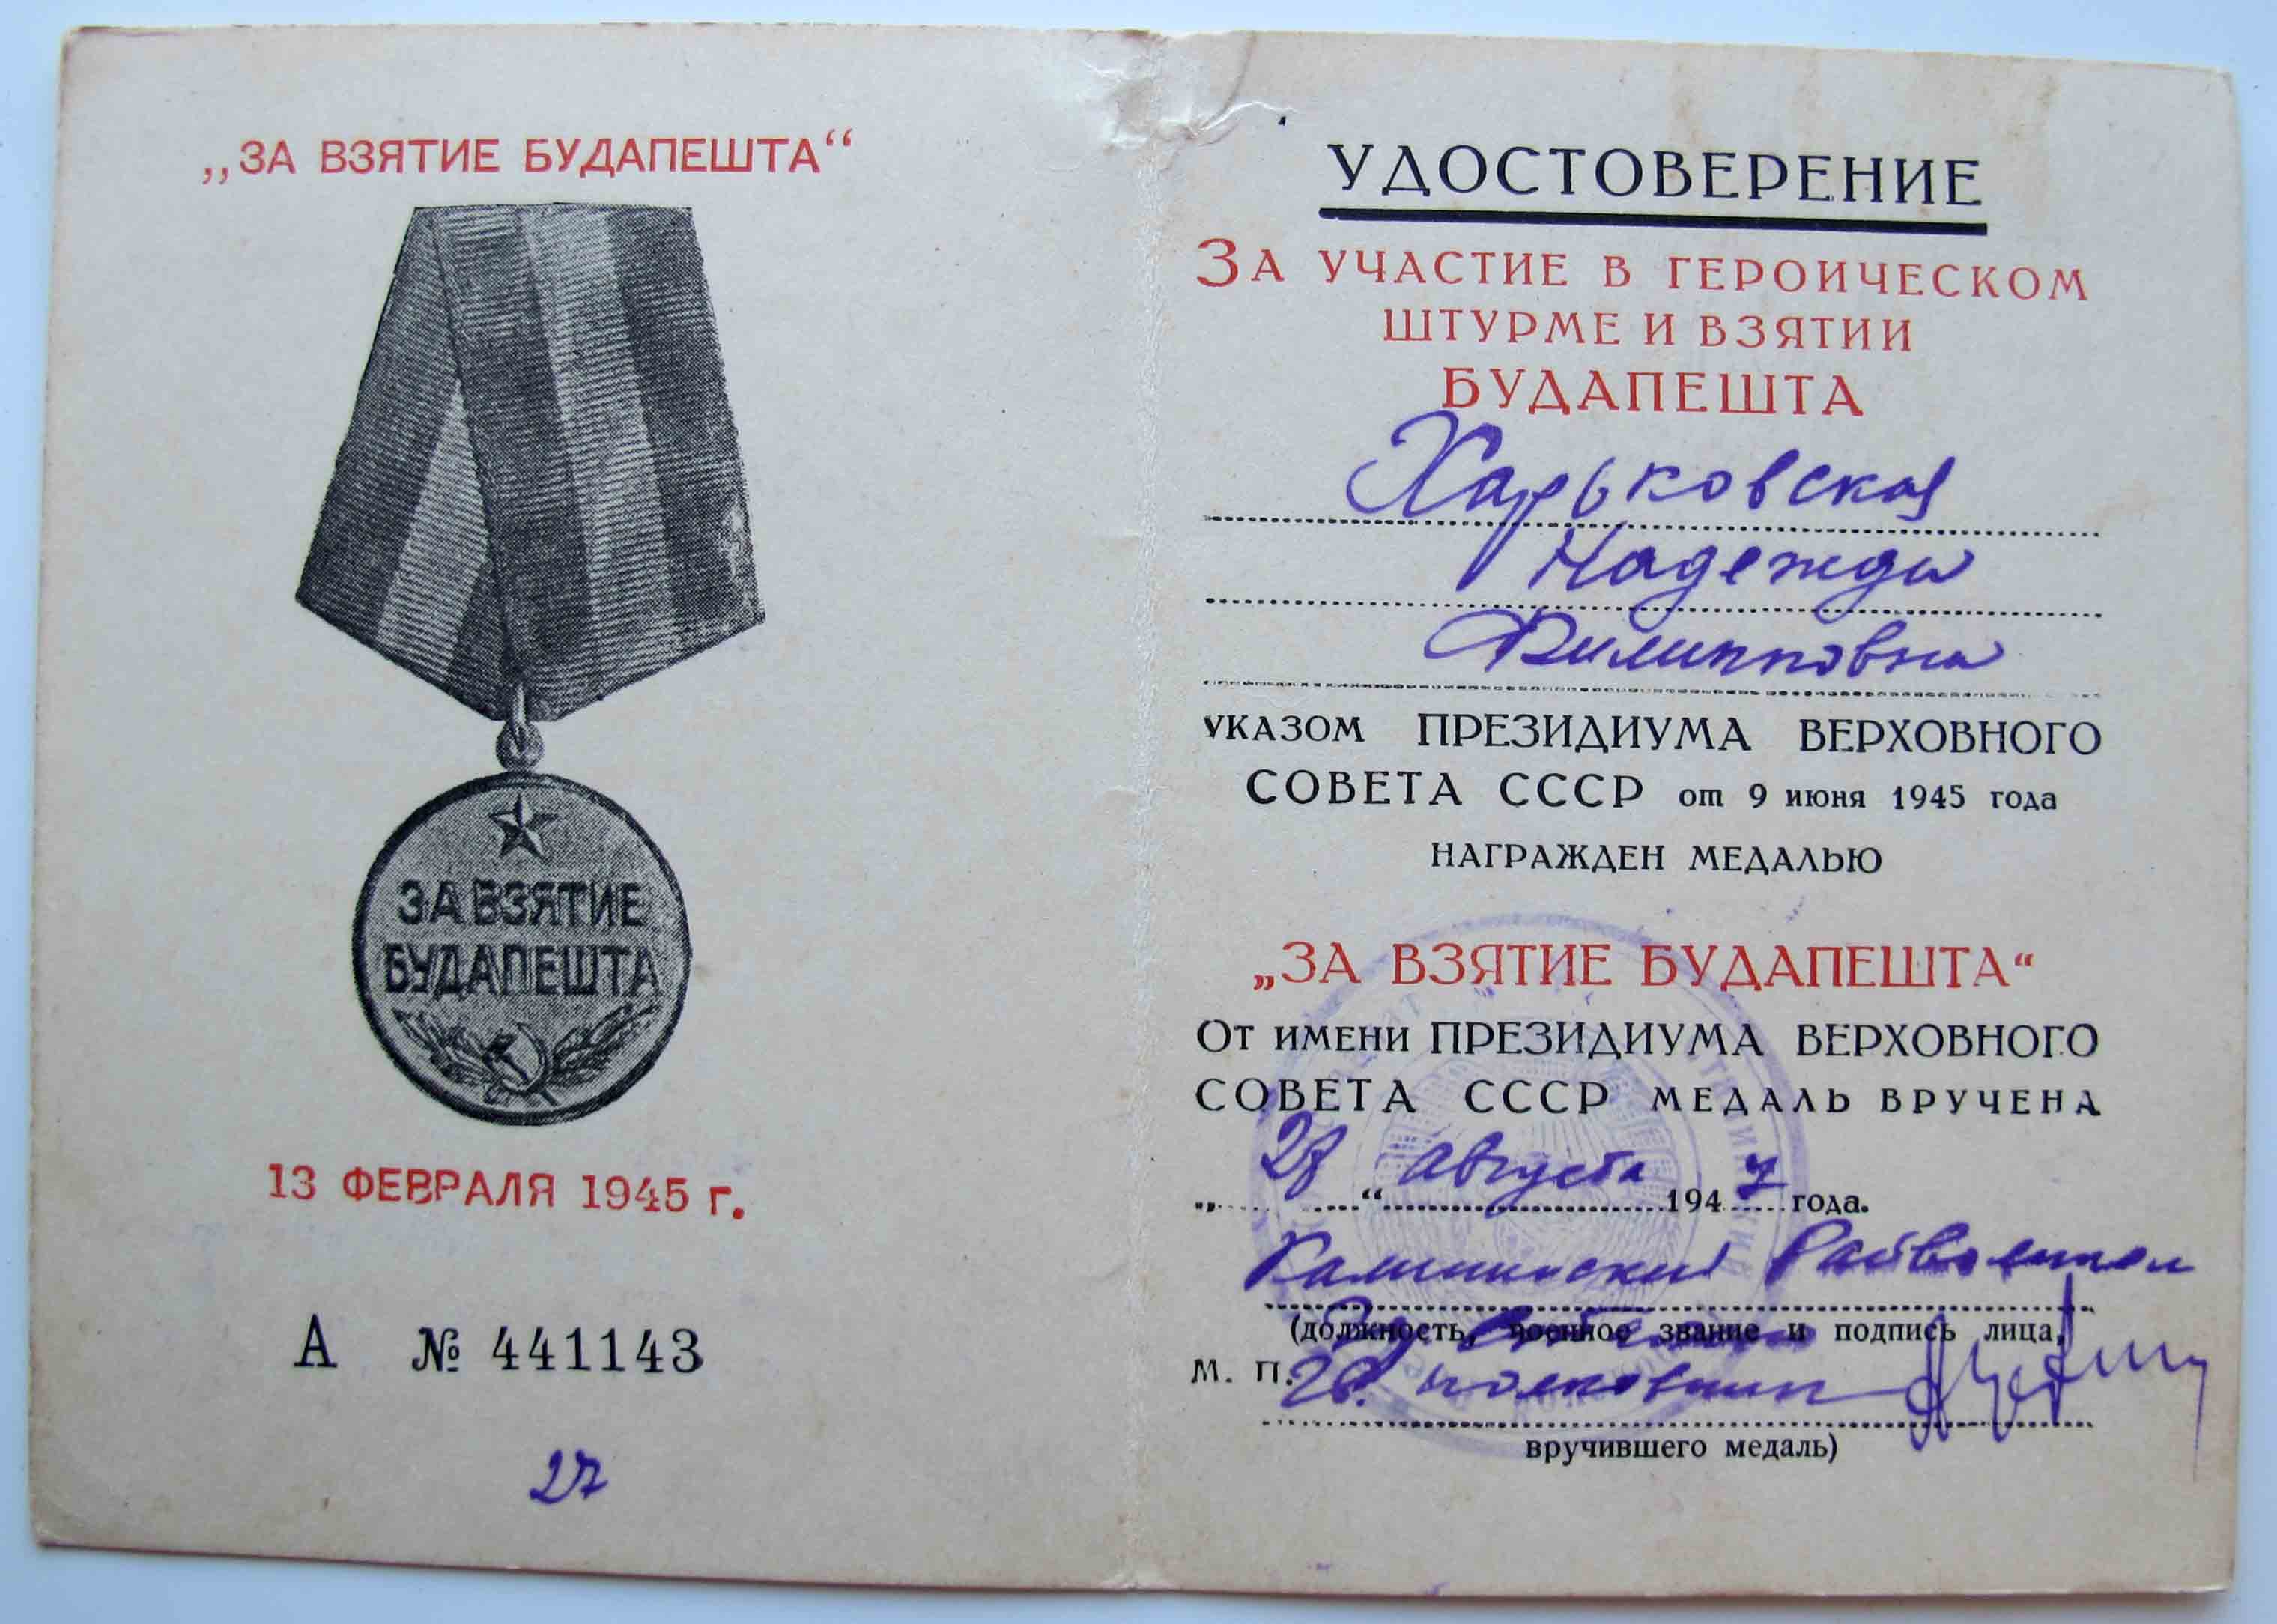 „ЗА ВЗЯТИЕ БУДАПЕШТА“
ЗА ВЗЯТИЕ
БУДАПЕШТА
13 ФЕВРАЛЯ 1945 г.
А № 441143
27
УДОСТОВЕРЕНИЕ
ЗА УЧАСТИЕ В ГЕРОИЧЕСКОМ
ШТУРМЕ И ВЗЯТИИ
БУДАПЕШТА
Харьковская
Надежда
Филипповна
УКАЗОМ ПРЕЗИДИУМА ВЕРХОВНОГО
СОВЕТА СССР от 9 июня 1945 года
НАГРАЖДЕН МЕДАЛЬЮ
„ЗА ВЗЯТИЕ БУДАПЕШТА“
ОТ ИМЕНИ ПРЕЗИДИУМА ВЕРХОВНОГО
СОВЕТА СССР МЕДАЛЬ ВРУЧЕНА
„28“ августа 1947 года.
Калининский Райвоенком
(должность, военное звание и подпись лица,
М. П. полковник
вручившего медаль)